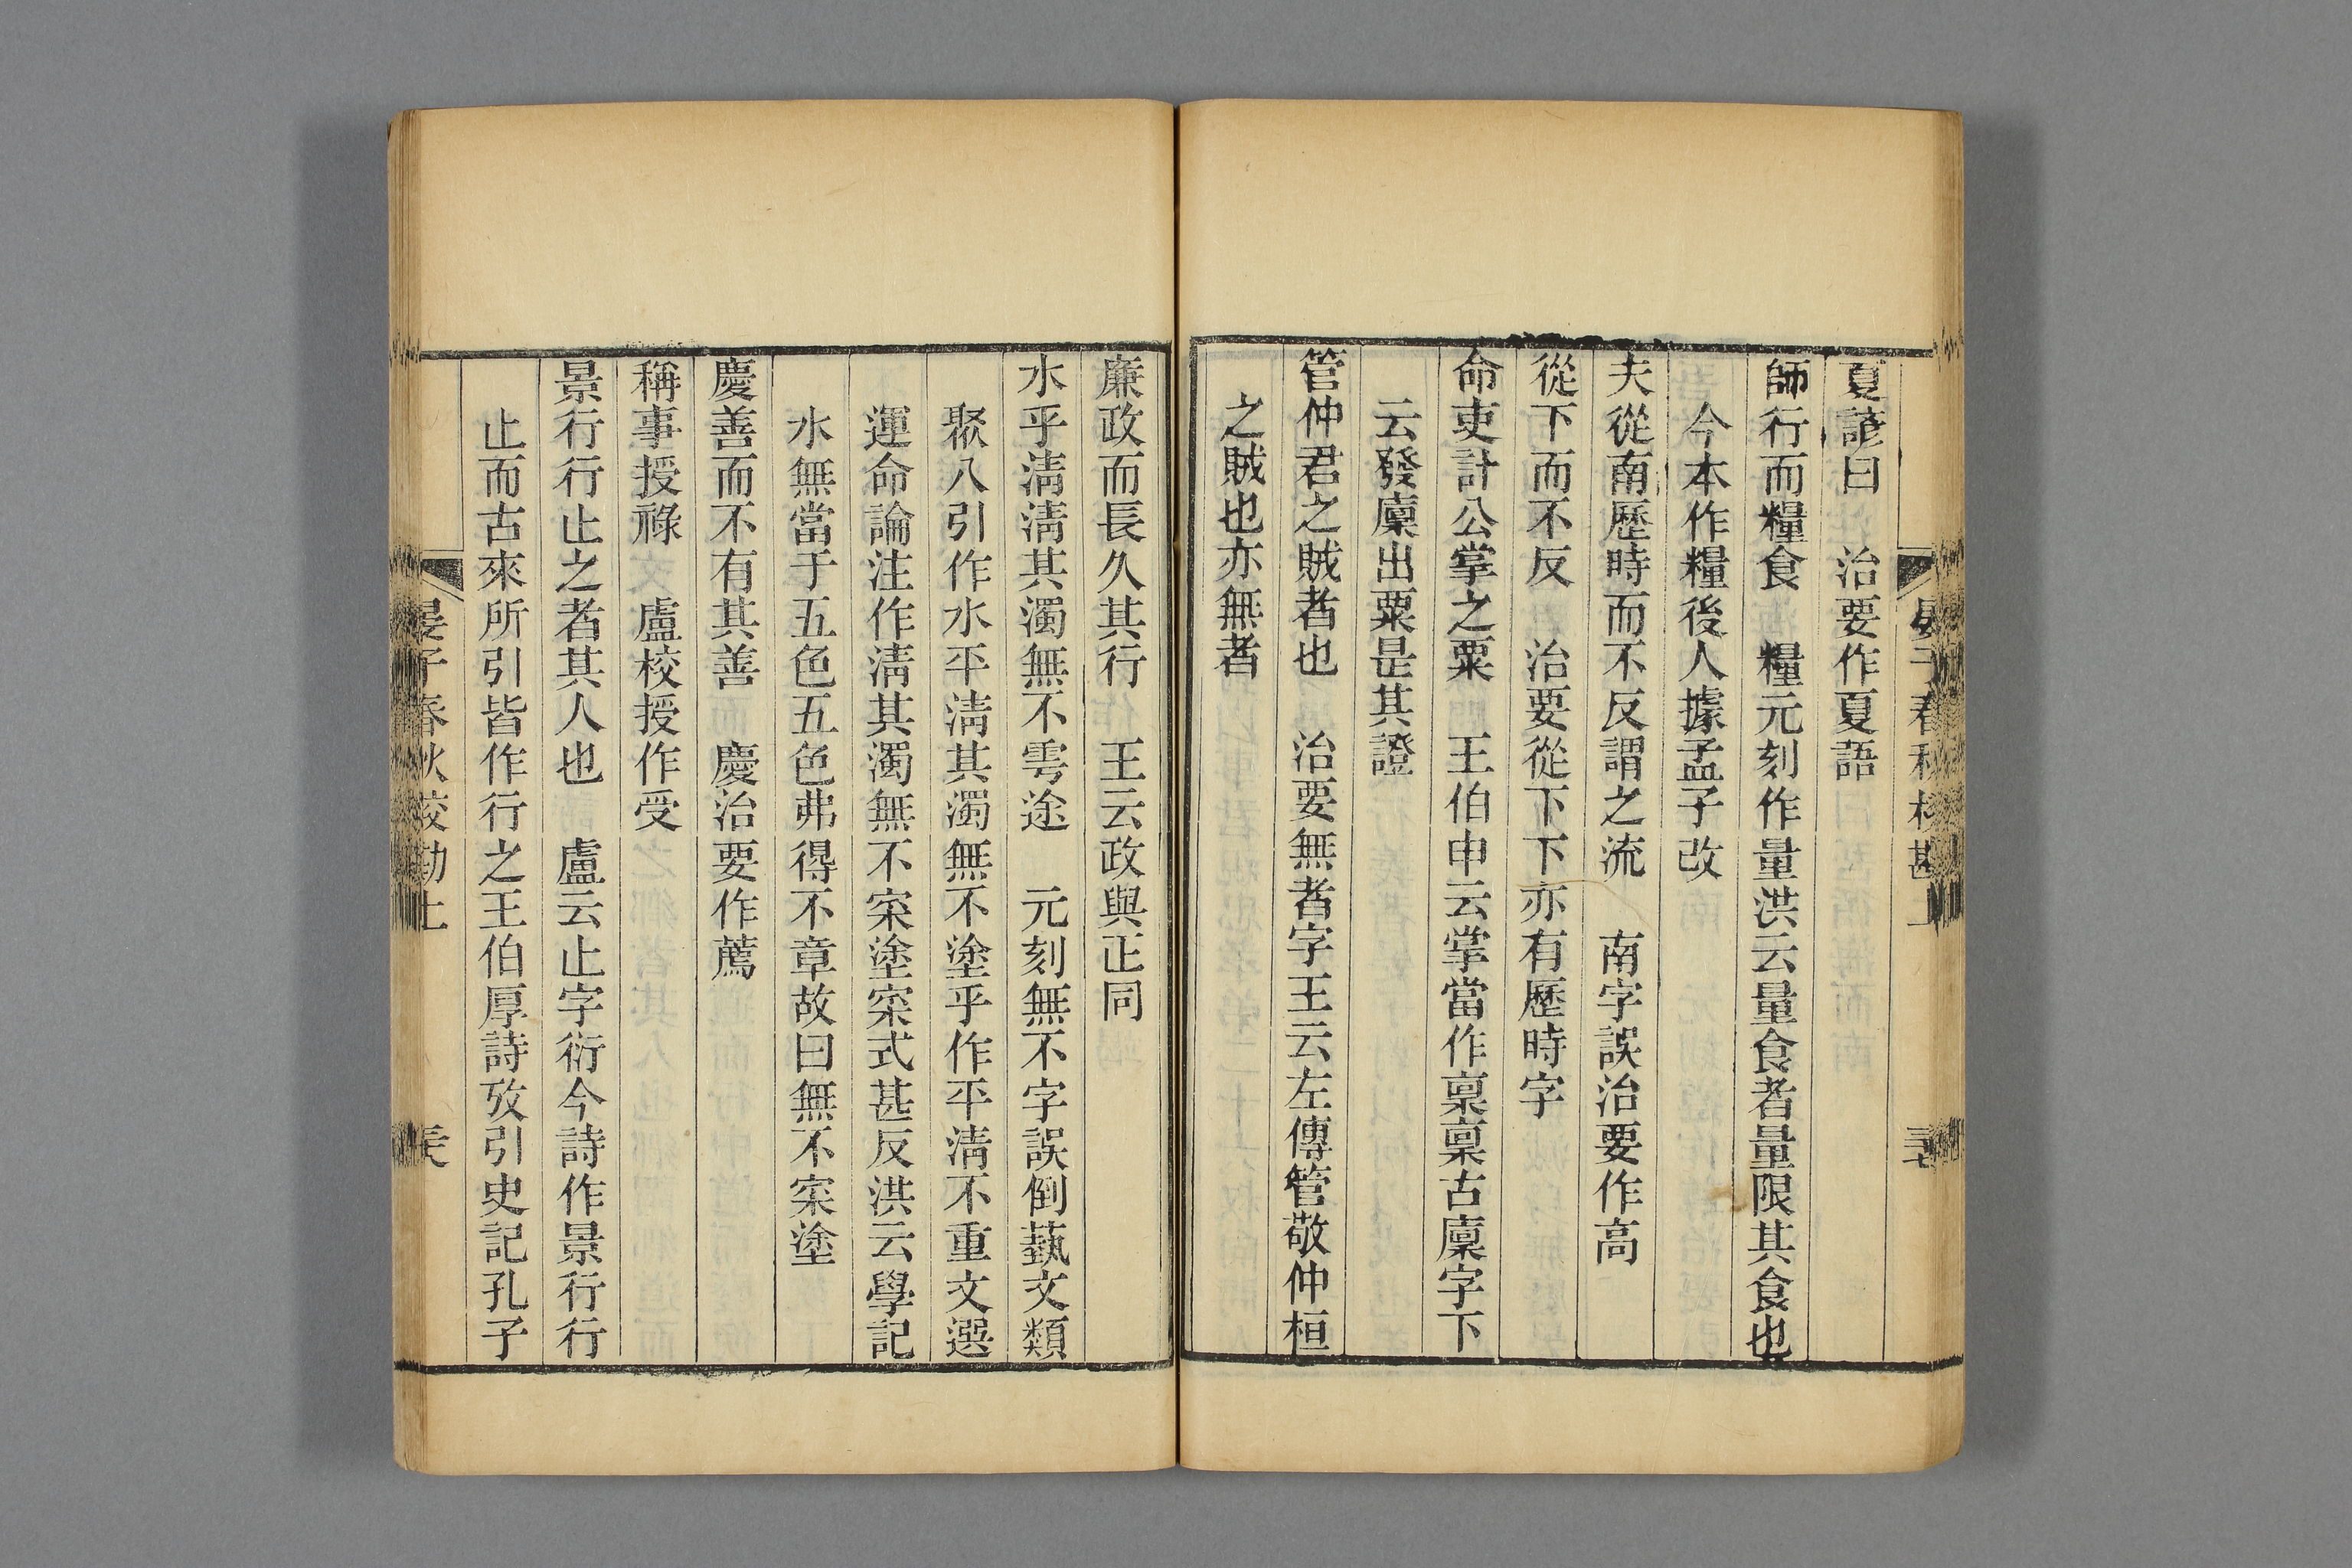 夏諺曰　治要作夏語
師行而糧食　糧元刻作量洪云量食者量限其食也
今本作糧後人據孟子改
夫從南歷時而不反謂之流　南字誤治要作高
從下而不反　治要從下下亦有歷時字
命吏計公掌之粟　王伯申云掌當作稟稟古廩字下
云發廩出粟是其證
管仲君之賊者也　治要無者字王云左傳管敬仲桓
之賊也亦無者
廉政而長久其行　王云政與正同
水乎淸淸其濁無不雩途　元刻無不字誤倒藝文類
聚八引作水平淸其濁無不塗乎作平淸不重文選
運命論注作淸其濁無不㝖塗㝖式甚反洪云學記
水無當于五色五色弗得不章故曰無不㝖塗
慶善而不有其善　慶治要作薦
稱事授祿　盧校授作受
景行行止之者其人也　盧云止字衍今詩作景行行
止而古來所引皆作行之王伯厚詩攷引史記孔子
晏子春秋校勘上